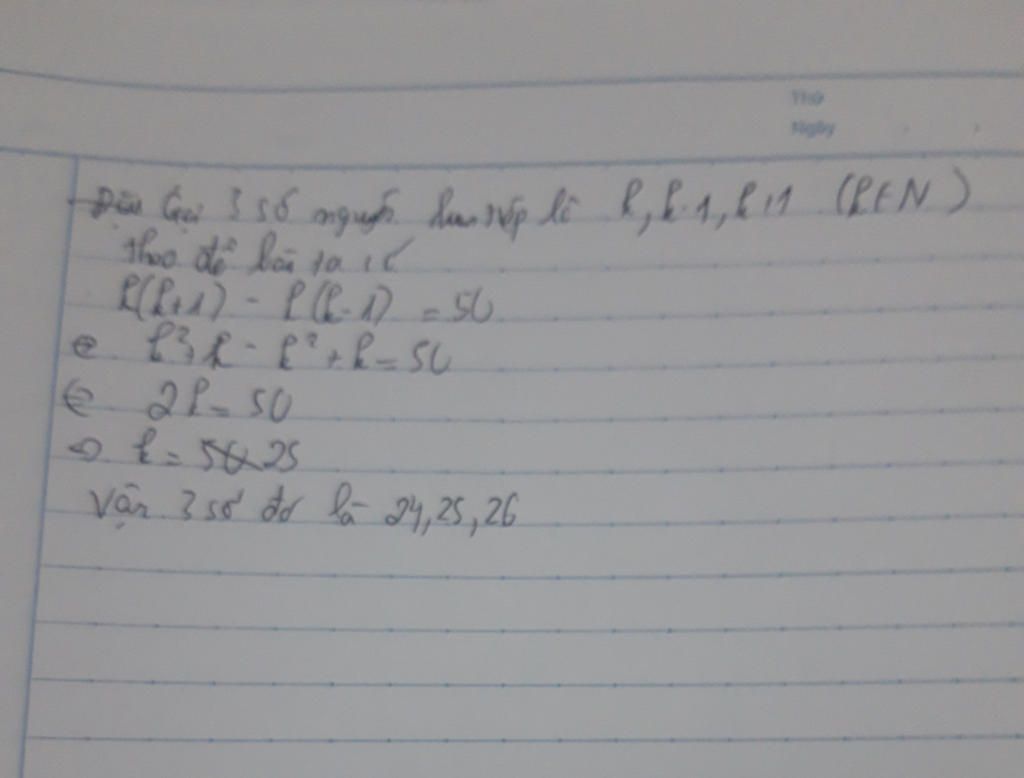 Thứ
Ngày
Gọi 3 số nguyên liên tiếp là k, k-1, k+1 (k∈N)
Theo đề bài ta có
k(k+1) - k(k-1) = 50
⇔ k²+k - k²+k = 50
⇔ 2k = 50
⇒ k = 25
Vậy 3 số đó là 24, 25, 26